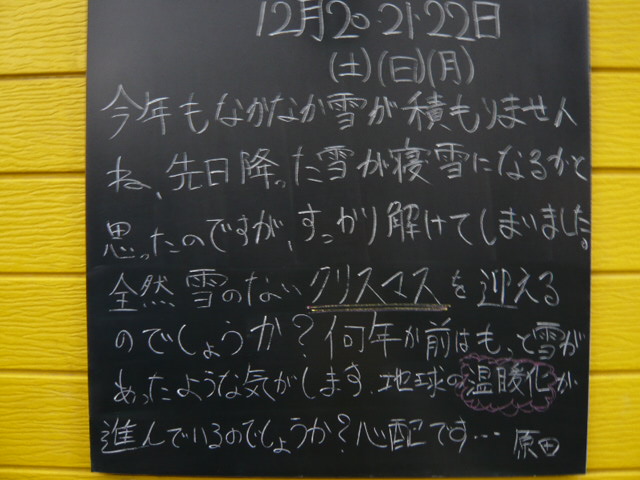 12月20・21・22日
(土)(日)(月)
今年もなかなか雪が積もりません
ね、先日降った雪が寝雪になるかと
思ったのですが、すっかり解けてしまいました。
全然雪のないクリスマスを迎える
のでしょうか?何年か前はもっと雪が
あったような気がします。地球の温暖化が
進んでいるのでしょうか?心配です…原田